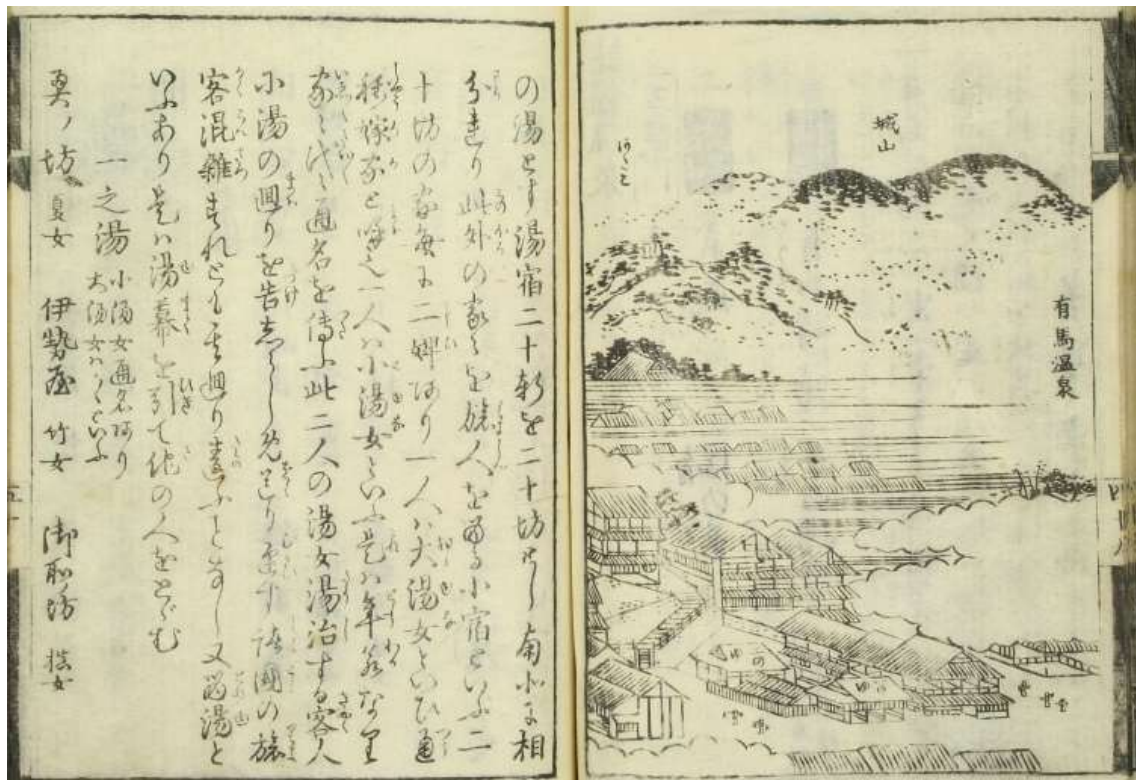 有馬温泉
城山
の湯とす湯宿二十軒を二十坊とし南北に相
分まり此外の家々を旅人を留る小宿といふ二
十坊の家毎に二婢あり一人ハ大湯女といひ通
称嫁家と呼又一人ハ小湯女といふ是ハ年若なり
家々代々通名を傳ふ此二人の湯女湯治する客人
に湯の廻りを告しらしめ送り迎す諸國の旅
客混雑すれども其廻り違ふことなし又留湯と
いふあり是ハ湯幕を引て他の人をとゞむ
一之湯 小湯女通名あり
大湯女ハかくといふ
奥ノ坊 夏女 伊勢屋 竹女 御所坊